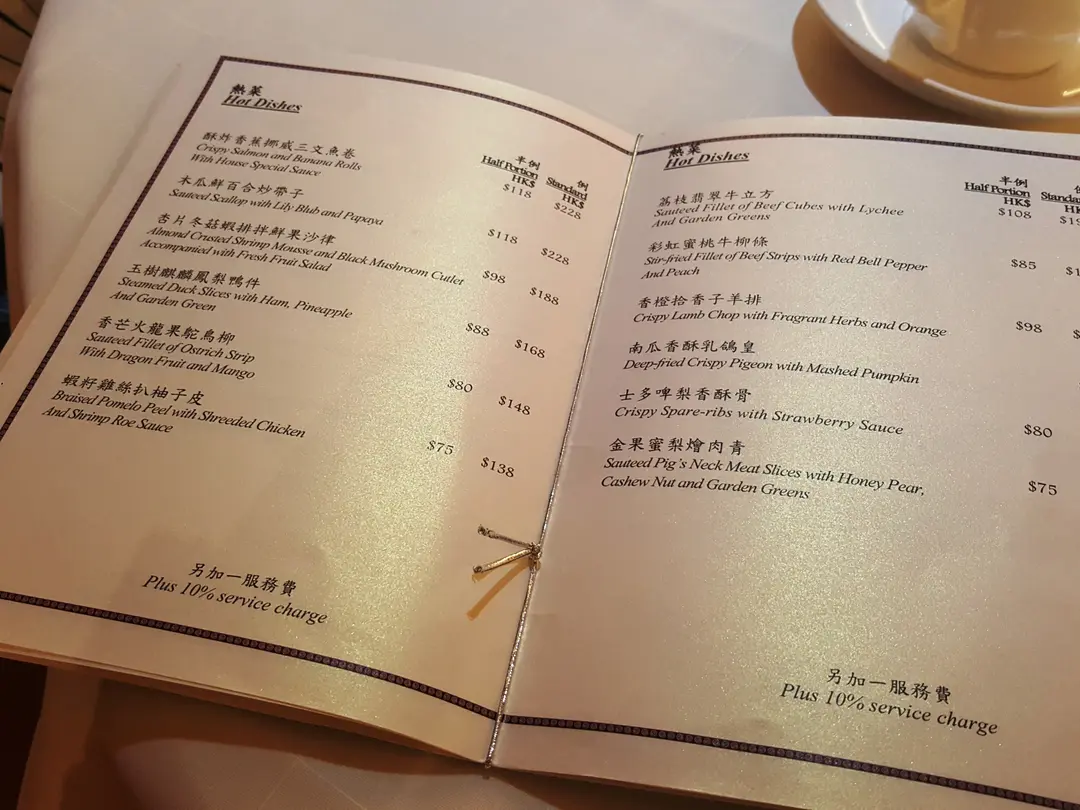 熱菜
Hot Dishes
半例 例
Half Portion Standard
HK$ HK$
酥炸香蕉挪威三文魚卷
Crispy Salmon and Banana Rolls
With House Special Sauce
$118 $228
木瓜鮮百合炒帶子
Sauteed Scallop with Lily Blub and Papaya
$118 $228
杏片冬菇蝦排拌鮮果沙律
Almond Crusted Shrimp Mousse and Black Mushroom Cutlet
Accompanied with Fresh Fruit Salad
$98 $188
玉樹麒麟鳳梨鴨件
Steamed Duck Slices with Ham, Pineapple
And Garden Green
$88 $168
香芒火龍果鴕鳥柳
Sauteed Fillet of Ostrich Strip
With Dragon Fruit and Mango
$80 $148
蝦籽雞絲扒柚子皮
Braised Pomelo Peel with Shreeded Chicken
And Shrimp Roe Sauce
$75 $138
另加一服務費
Plus 10% service charge
熱菜
Hot Dishes
半例
Half Portion
HK$ HK$
荔枝翡翠牛立方
Sauteed Fillet of Beef Cubes with Lychee
And Garden Greens
$108
彩虹蜜桃牛柳條
Stir-fried Fillet of Beef Strips with Red Bell Pepper
And Peach
$85
香橙拾香子羊排
Crispy Lamb Chop with Fragrant Herbs and Orange
$98
南瓜香酥乳鴿皇
Deep-fried Crispy Pigeon with Mashed Pumpkin
士多啤梨香酥骨
Crispy Spare-ribs with Strawberry Sauce
$80
金果蜜梨燴肉青
Sauteed Pig's Neck Meat Slices with Honey Pear,
Cashew Nut and Garden Greens
$75
另加一服務費
Plus 10% service charge